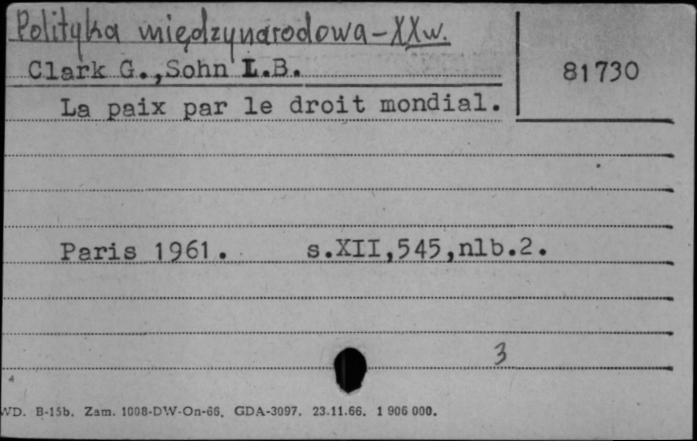 Polityka międzynarodowa-XXw.
Clark G.,Sohn L.B.
81730
La paix par le droit mondial.
Paris 1961. s.XII,545,nlb.2.
3
WD. B-15b. Zam. 1008-DW-On-66. GDA-3097. 23.11.66. 1 906 000.